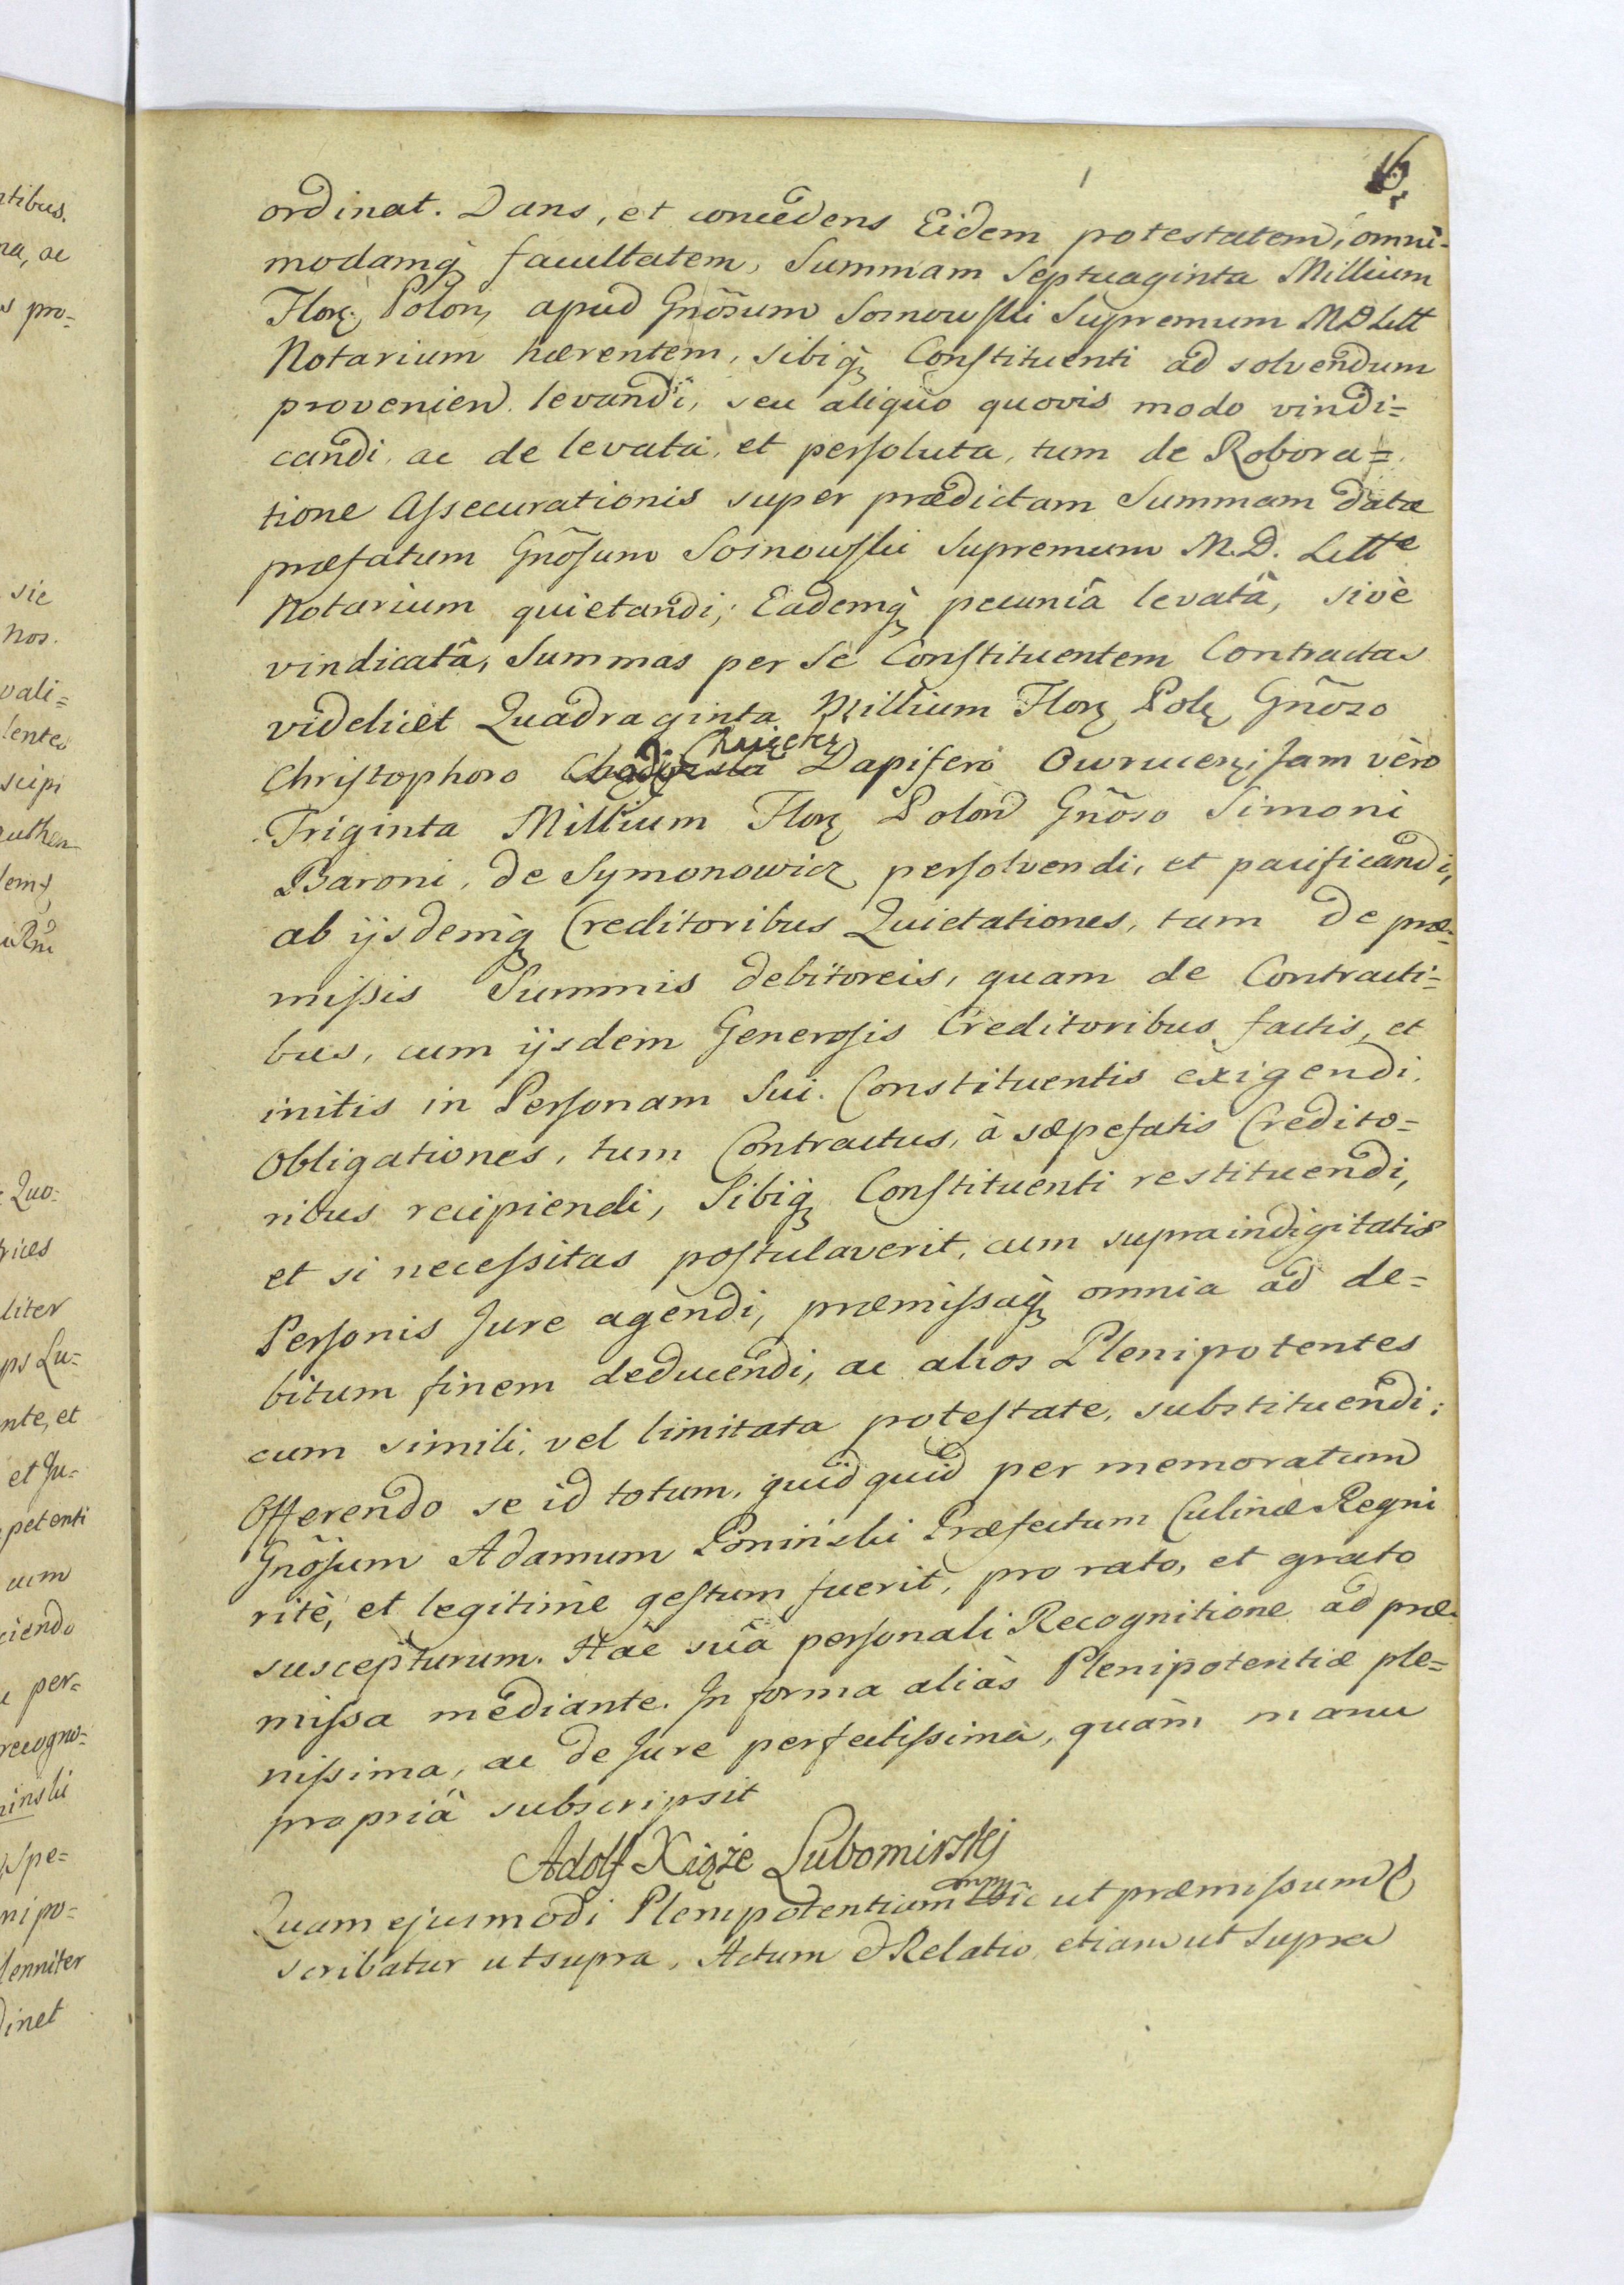 16
ordinat. Dans, et concedens Eidem potestatem, omni-
modamq̃ facultatem, Summam Septuaginta Millium
Flor. Polon, apud Gnõsum Sosnowski Supremum M D Litt
Notarium hærentem, sibiq̃ Constituenti ad solvendum
provenien. levandi, seu aliquo quovis modo vindi=
candi, ac de levata, et persoluta, tum de Robora=
tione Assecurationis super prædictam Summam datæ
præfatum Gnõsum Sosnowski Supremum M.D. Litt̃e
Notarium quietandi; Eademq̃ pecuniâ levatâ, sivè
vindicatâ, Summas per Se Constituentem Contractas
videlicet Quadraginta Millium Flor Pol Gnõso
Christophoro Dapifero Owrucen, jam vèro
Triginta Millium Flor Polon Gnõso Simoni
Baroni, de Symonowicz persolvendi, et pacificandi,
ab ijsdemq̃ Creditoribus Quietationes, tam de præ=
missis Summis debitoreis, quam de Contracti=
bus, cum ijsdem Generosis Creditoribus factis, et
initis in Personam Sui Constituentis exigendi.
Obligationes, tum Contractus, à sæpefatis Credito=
ribus recipiendi, Sibiq̃ Constituenti restituendi,
et si necessitas postulaverit, cum supraindigitatis
Personis Jure agendi, præmissaq̃ omnia ad de=
bitum finem deducendi, ac alios Plenipotentes
cum simili, vel limitata potestate, substituendi;
Offerendo se id totum, quidquid per memoratum
Gnõsum Adamum Poniński Præfectum Culinæ Regni
ritè, et legitimè gestum fuerit, pro rato, et grato
suscepturum. Hac suâ personali Recognitione ad præ-
missa mediante. In forma aliàs Plenipotentiæ ple=
nissima, ac de Jure perfectissimâ, quàm manu
propriâ subscripsit
Adolf Xiąże Lubomirskj
mpp
Quam ejusmodi Plenipotentiam sic ut præmissum e,
scribatur ut supra, Actum & Relatio, etiam ut Supra